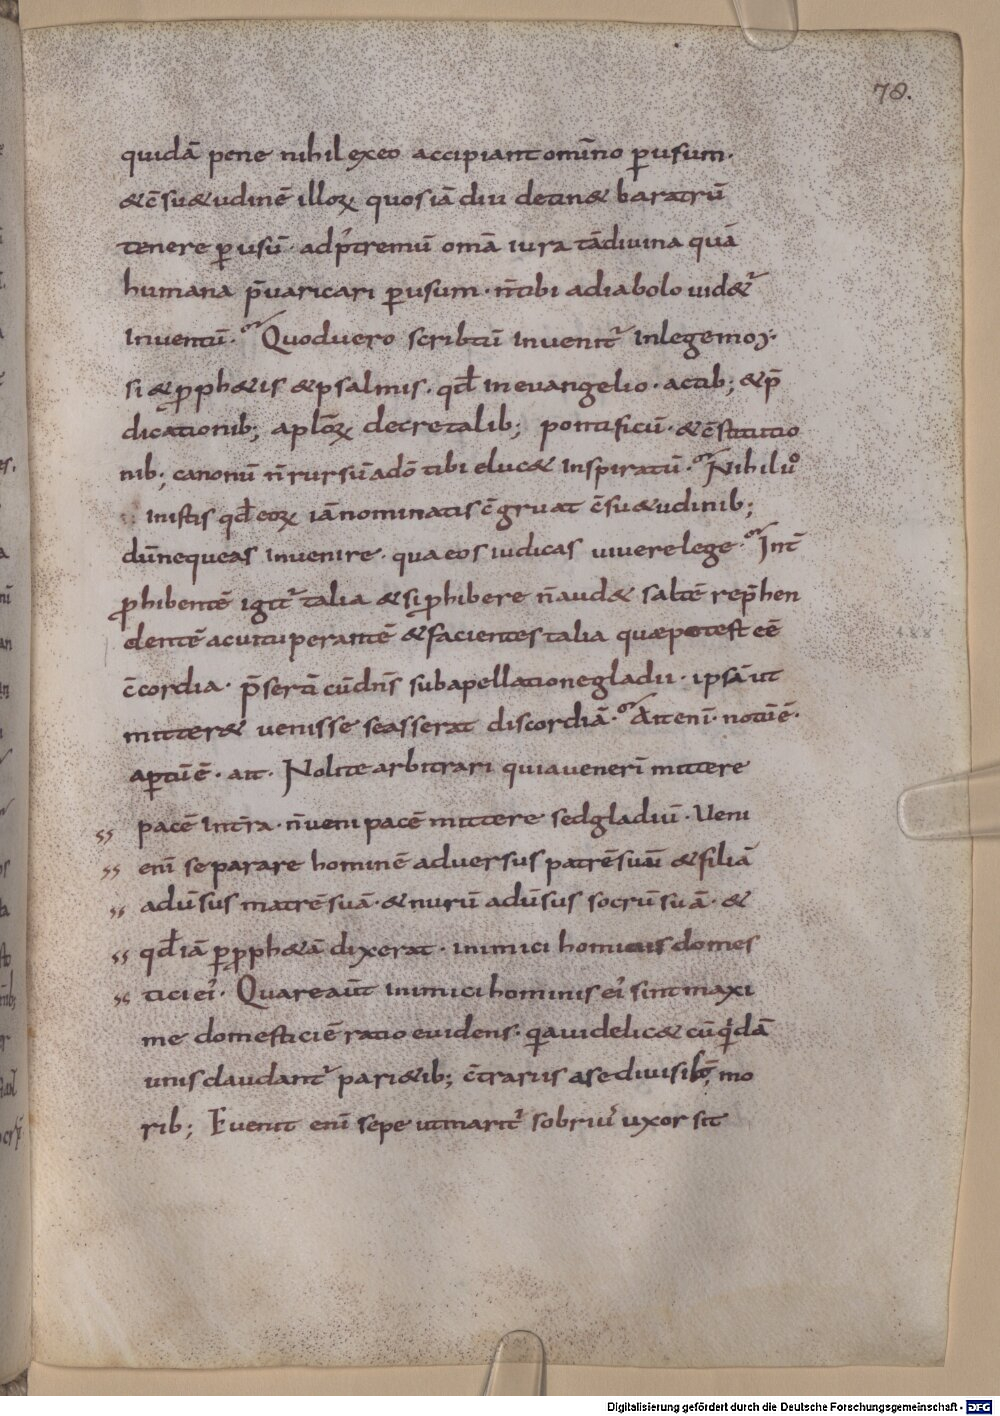 78.
quidā pene nihil exeo accipiant omīno ꝑusum.
&c̄su&udinē illoꝝ quos iā diu detin& baratrū
tenere ꝑusū · adp̓tremū omā iura tādiuina quā
humana p̄uaricari ꝑusum · n̄tibi adiabolo uid&ᷣ
inuentū. Quoduero scribtū inuenitᷣ inlegemoy·
si &ꝓph&is &psalmis. qđ in euangelio · actib; &p̄
dicationib; aplōꝝ decretalib; pontificū · &c̄stitutio
nib; canonū n̄rursū adō tibi eluc& inspiratū. Nihil uº
inistis qđ eoꝝ iā nominatis c̄gruat c̄su&udinib;
dūnequeas inuenire · qua eos iudicas uiuere lege. Int̄
ꝓhibentē igitᷣ talia &siꝓhibere n̄aud& saltē rep̄hen
dentē acuituperantē &facientes talia quæpotest eē
c̄cordia · p̄sertī cūdn̄s subapellationegladii · ipsā ut
mitter& uenisse seasserat discordiā. Att enī · notūē·
aꝑtūē · ait. Nolite arbitrari quia uenerī mittere
pacē intr̄a · n̄ueni pacē mittere sedgladiū · Ueni
enī separare hominē aduersus patrē suū &filiā
adūsus matrē suā · &nurū adūsus socrū suā · &
qđ iā ꝑꝓph&ā dixerat · inimici hominis domes
tici ei᾽. Quare aūt inimici hominis ei᾽ sint maxi
me domesticiē ratio euidens · qia uidelic& cūqidā
unis claudantᷣ pari&ib; c̄trariis a se diuisib; mo
rib; Euenit enī sepe utmaritᷣ sobriu᾽ uxor sit